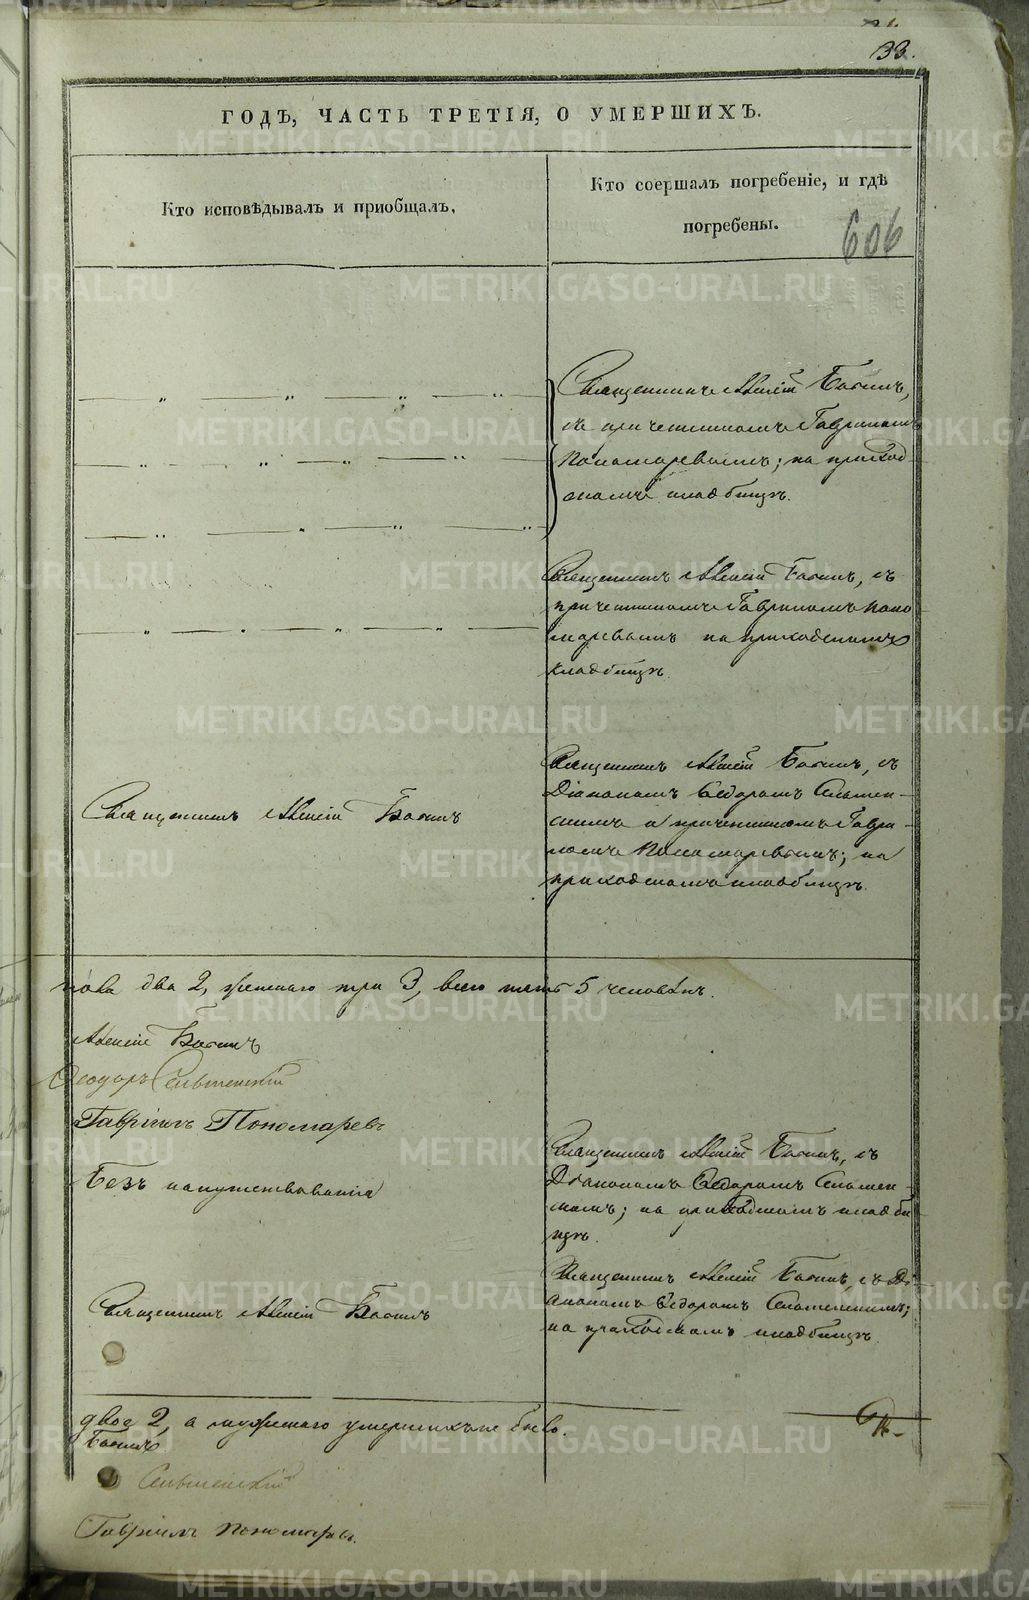 33.
ГОДЪ, ЧАСТЬ ТРЕТІЯ, О УМЕРШИХЪ.
Кто исповѣдывалъ и пріобщалъ.
Кто соершалъ погребеніе, и гдѣ
погребены.
606
Священникъ Алексій Басинъ,
съ причетникомъ Гавриломъ
Пономаревымъ; на приход
скомъ кладбищѣ.
Священникъ Алексій Басинъ, съ
причетникомъ Гавриломъ Поно
маревымъ на приходскомъ
кладбищѣ.
Священникъ Алексій Басинъ
Священникъ Алексій Басинъ, съ
Діакономъ Ѳедоромъ
и причетникомъ Гаври-
ломъ Пономаревымъ; на
приходскомъ кладбищѣ.
пова два 2, женскаго три 3, всего пять 5 человѣкъ.
Алексій Басинъ
Ѳеодоръ
Гавріилъ Пономаревъ
Безъ напутствованія
Священникъ Алексій Басинъ, съ
Діакономъ Ѳедоромъ
на приходскомъ кладби
щѣ.
Священникъ Алексій Басинъ
Священникъ Алексій Басинъ, съ Ді
акономъ Ѳедоромъ
на приходскомъ кладбищѣ.
двое 2, а мужескаго умершихъ не было.
Басинъ
Гавріилъ Пономаревъ.
METRIKI.GASO-URAL.RU